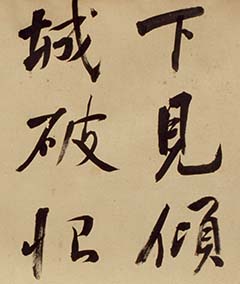 下見傾
城破恨